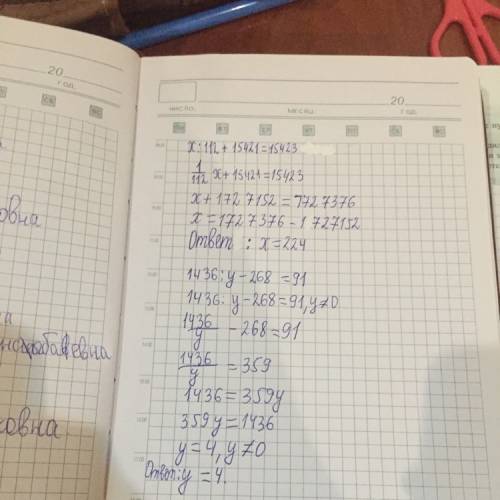 20
год.
число:
месяц:
20
год.
x:112 + 15421 = 15423
1/112 x + 15421 = 15423
x + 1727152 = 1727376
x = 1727376 - 1727152
Ответ : x = 224
1436 : y - 268 = 91
1436 : y - 268 = 91, y≠0
1436/y - 268 = 91
1436/y = 359
1436 = 359y
359y = 1436
y = 4, y≠0
Ответ: y = 4.
овна